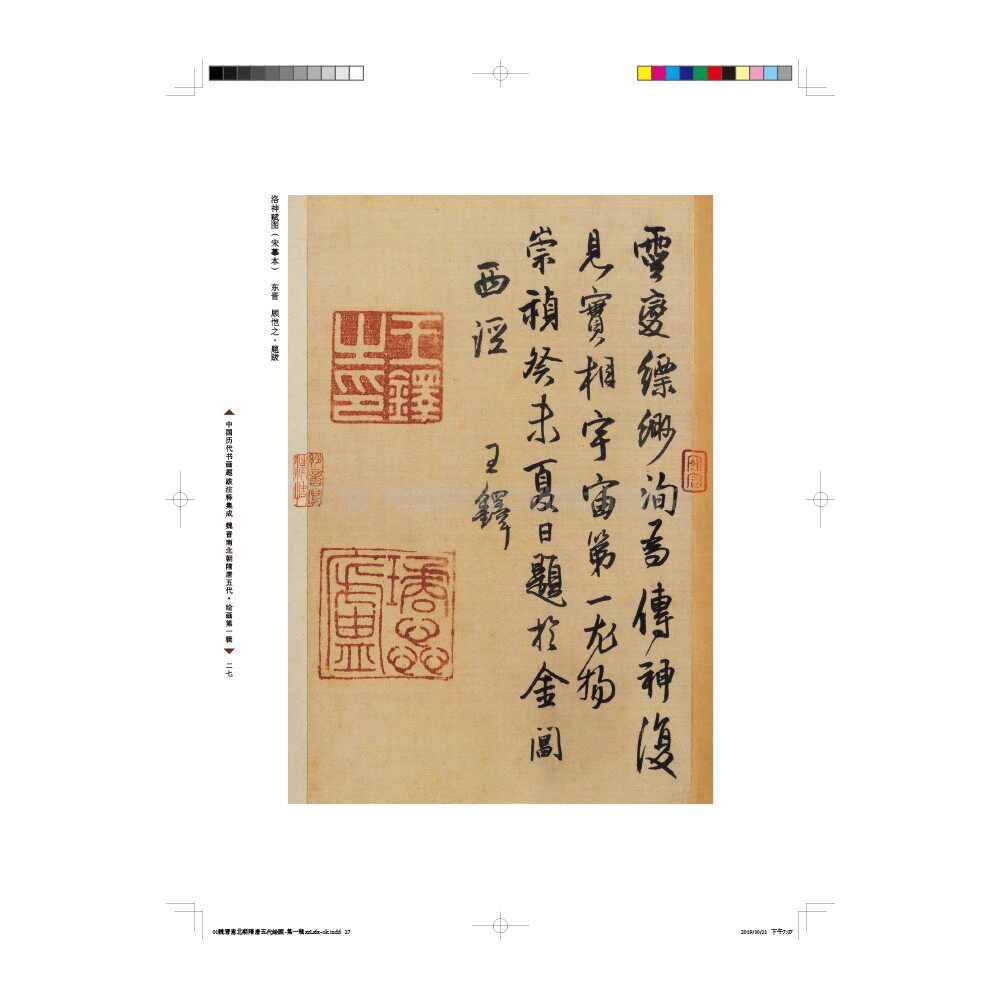 靈變縹緲洵為傳神復
見實相宇宙第一尤物
崇禎癸未夏日題於金閶
西涇
王鐸
王鐸之印
洛神赋图（宋摹本） 东晋 顾恺之·题跋
中国历代书画题跋注释集成 魏晋南北朝隋唐五代·绘画第一辑 二七
01魏晋南北朝隋唐五代绘画-第一辑xzLzlz-ok.indd 27
2019/10/21 下午7:07